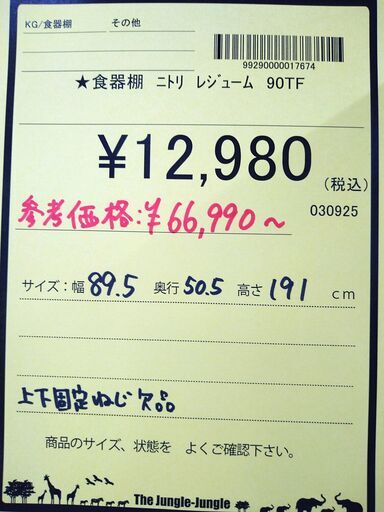 KG/食器棚 その他
99290000017674
★食器棚 ニトリ レジューム 90TF
¥12,980
(税込)
参考価格:¥66,990~
030925
サイズ:幅 89.5 奥行 50.5 高さ 191 cm
上下固定ねじ欠品
商品のサイズ、状態を よくご確認下さい。
The Jungle-Jungle